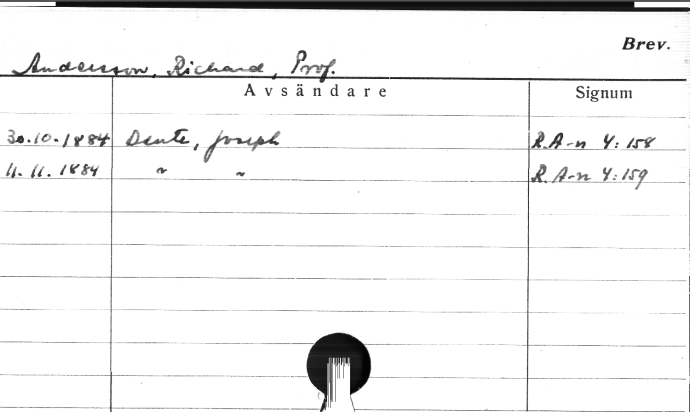 Brev.
Andersson, Richard, Prof.
Avsändare Signum
30.10.1884 Dente, Joseph R.A-n 4:158
11.11.1884 " " R.A-n 4:159